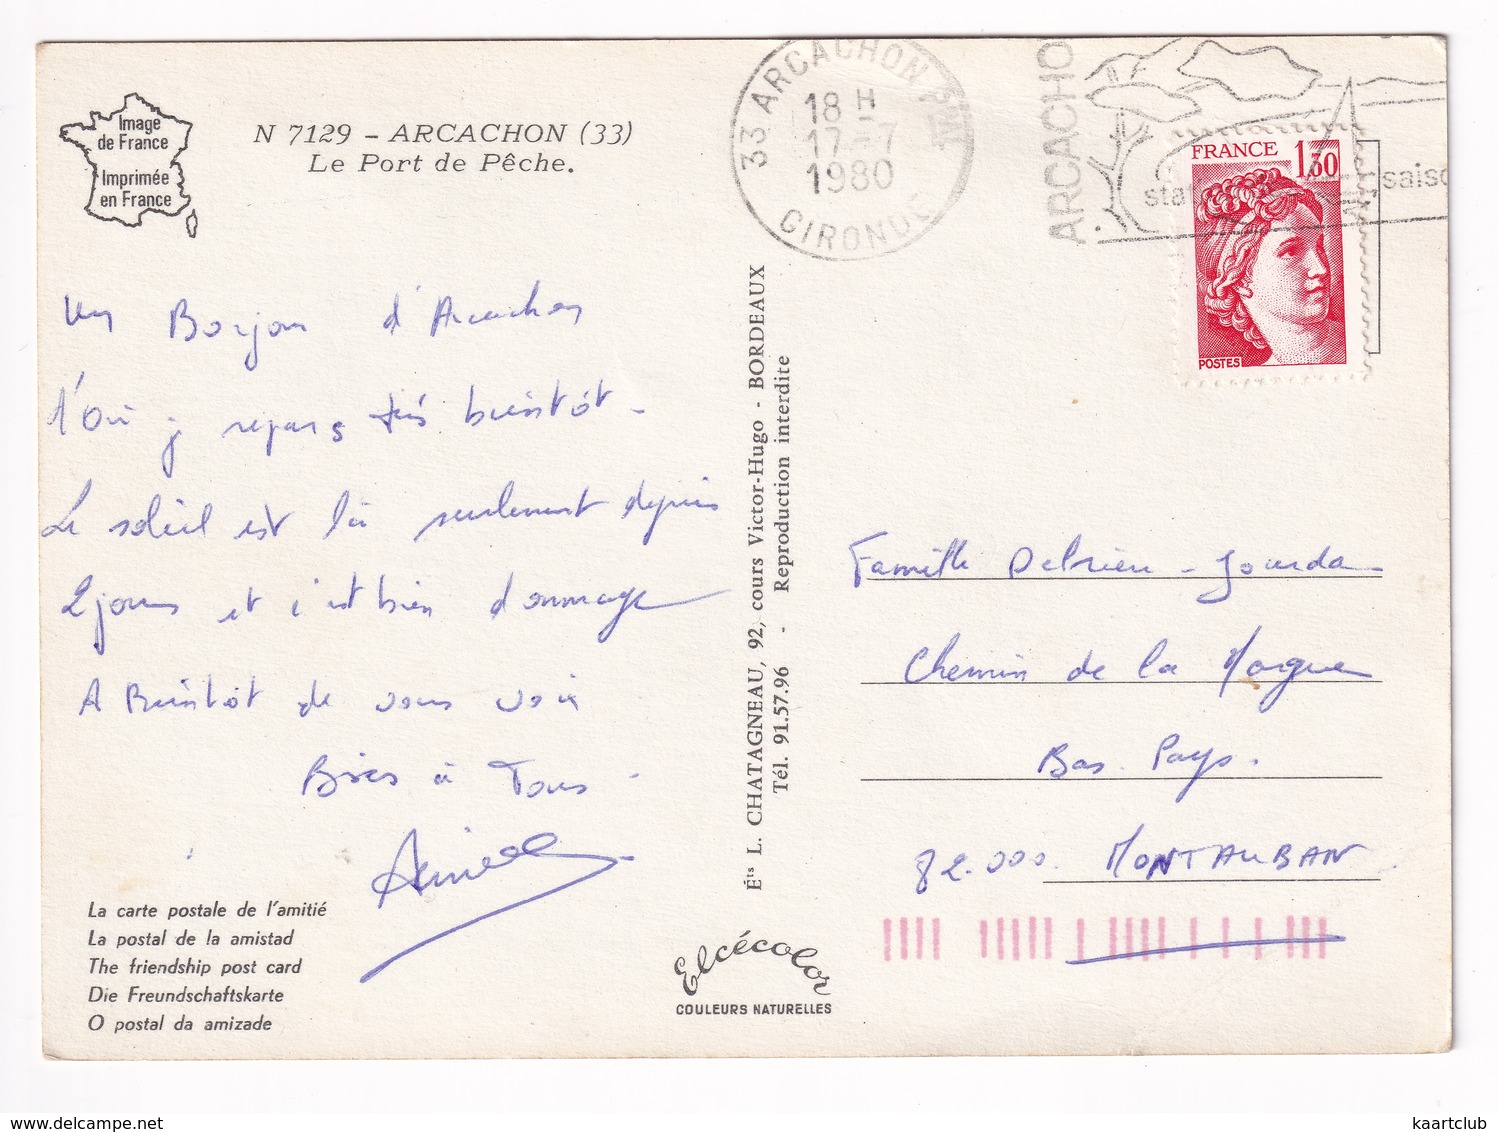 Image
de France
Imprimée
en France
N 7129 - ARCACHON (33)
Le Port de Pêche.
33 ARCACHON
18 H
17 - 7
1980
GIRONDE
ARCACHO
stat
saiso
FRANCE 1,30
POSTES
Un Bonjour d'Arcachon
d'Où je repars très bientôt.
Le soleil est là seulement depuis
2 jours et c'est bien dommage
A Bientôt de vous voir
Bises à Tous.
Éts L. CHATAGNEAU, 92, cours Victor-Hugo - BORDEAUX
Tél. 91.57.96 - Reproduction interdite
Famille Delrieu - Jourda
Chemin de la Margue
Bas. Pays.
82.000. MONTAUBAN
La carte postale de l'amitié
La postal de la amistad
The friendship post card
Die Freundschaftskarte
O postal da amizade
Elcécolor
COULEURS NATURELLES
www.delcampe.net
kaartclub